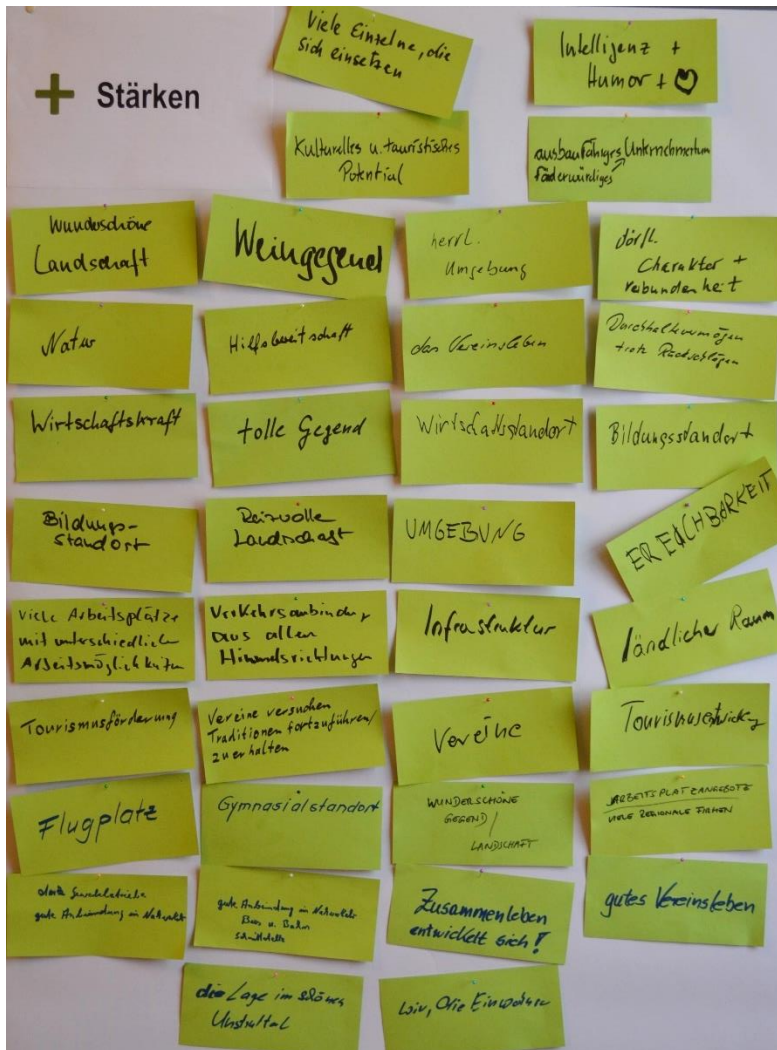 + Stärken
Viele Einzelne, die
sich einsetzen
Intelligenz +
Humor + ♡
Kulturelles u. touristisches
Potential
ausbaufähiges Unternehmertum
förderwürdiges
Wunderschöne
Landschaft
Weingegend
herrl.
Umgebung
dörfl.
Charakter +
verbundenheit
Natur
Hilfsbereitschaft
das Vereinsleben
Durchhaltevermögen
trotz Rückschlägen
Wirtschaftskraft
tolle Gegend
Wirtschaftsstandort
Bildungsstandort
Bildungs-
standort
Reizvolle
Landschaft
UMGEBUNG
ERREICHBARKEIT
viele Arbeitsplätze
mit unterschiedlichen
Arbeitsmöglichkeiten
Verkehrsanbindung
aus allen
Himmelsrichtungen
Infrastruktur
ländlicher Raum
Tourismusförderung
Vereine versuchen
Traditionen fortzuführen/
zu erhalten
Vereine
Tourismusentwicklung
Flugplatz
Gymnasialstandort
WUNDERSCHÖNE
GEGEND /
LANDSCHAFT
ARBEITSPLATZANGEBOTE
VIELE REGIONALE FIRMEN
gute Anbindung im Nahverkehr
gute Anbindung im Nahverkehr
Bus u. Bahn
Schnittstelle
Zusammenleben
entwickelt sich!
gutes Vereinsleben
die Lage im schönen
Unstruttal
wir, die Einwohner